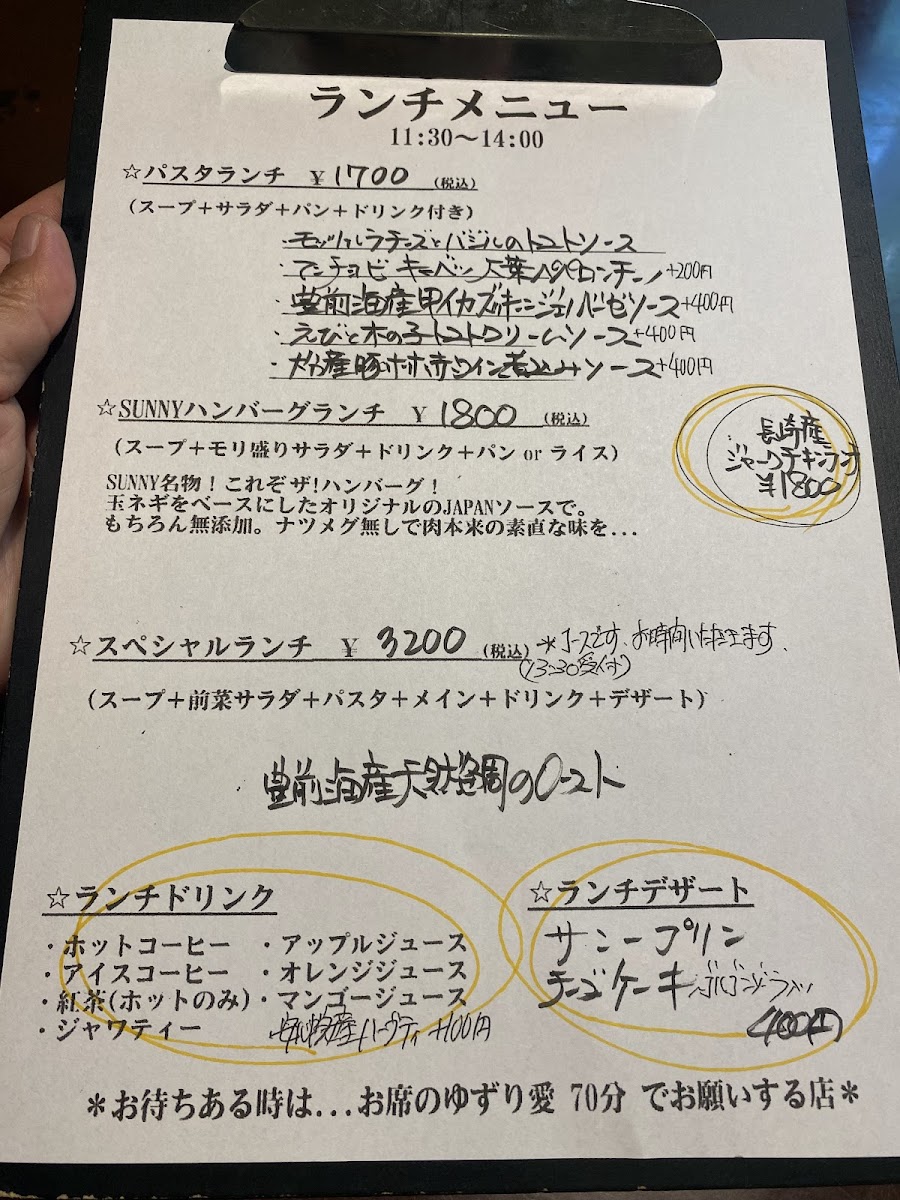 ランチメニュー
11:30〜14:00
☆パスタランチ ¥1700 (税込)
(スープ＋サラダ＋パン＋ドリンク付き)
・モッツァレラチーズとバジルのトマトソース
・アンチョビ キャベツ 大葉ペペロンチーノ +200円
・豊前海産甲イカズッキーニジェノバーゼソース+400円
・えびと木の子トマトクリームソース+400円
・大分産豚ホホ赤ワイン煮込みソース+400円
☆SUNNYハンバーグランチ ¥1800 (税込)
(スープ＋モリ盛りサラダ＋ドリンク＋パン or ライス)
長崎産
ジャークチキンライス
¥1800
SUNNY名物！これぞザ!ハンバーグ！
玉ネギをベースにしたオリジナルのJAPANソースで。
もちろん無添加。ナツメグ無しで肉本来の素直な味を...
☆スペシャルランチ ¥3200 (税込) *コースです、お時間いただきます、
(13:30受付)
(スープ＋前菜サラダ＋パスタ＋メイン＋ドリンク＋デザート)
豊前海産天然鯛のロースト
☆ランチドリンク
・ホットコーヒー ・アップルジュース
・アイスコーヒー ・オレンジジュース
・紅茶(ホットのみ)・マンゴージュース
・ジャワティー ハーブティ +100円
☆ランチデザート
サニープリン
チーズケーキ
400円
＊お待ちある時は...お席のゆずり愛 70分 でお願いする店＊